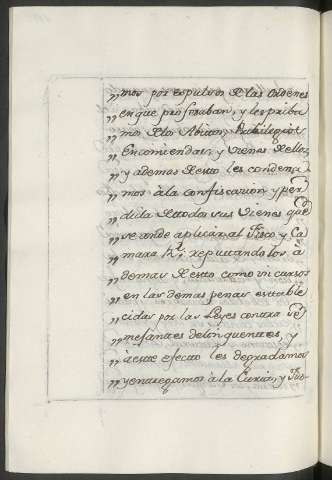 „mos por espulsos de las Ordenes
„en que profesaban, y les priba
„mos de los Abitos, Pribilegios
„Encomiendas, y vienes de ellas
„y ademas de esto les condena
„mos à la confiscacion y per
„dida de todos sus vienes que
„se ande aplicar al Fisco y Ca
„mara Rl; reputtandolos à
„demas de esto como incursos
„en las demas penas estable
„cidas por las Leyes contra se
„mejantes delinquentes, y
„à este efecto les degradamos
„y entregamos à la Curia, y